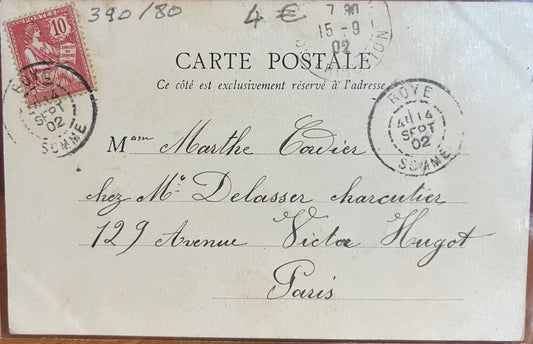 390/80
4 €
7 30
15-9
02
POSTES
10
CARTE POSTALE
Ce côté est exclusivement réservé à l'adresse
ROYE
14
SEPT
02
SOMME
ROYE
14
SEPT
02
SOMME
Mam Marthe Cordier
chez Mr Delasser charcutier
129 Avenue Victor Hugot
Paris